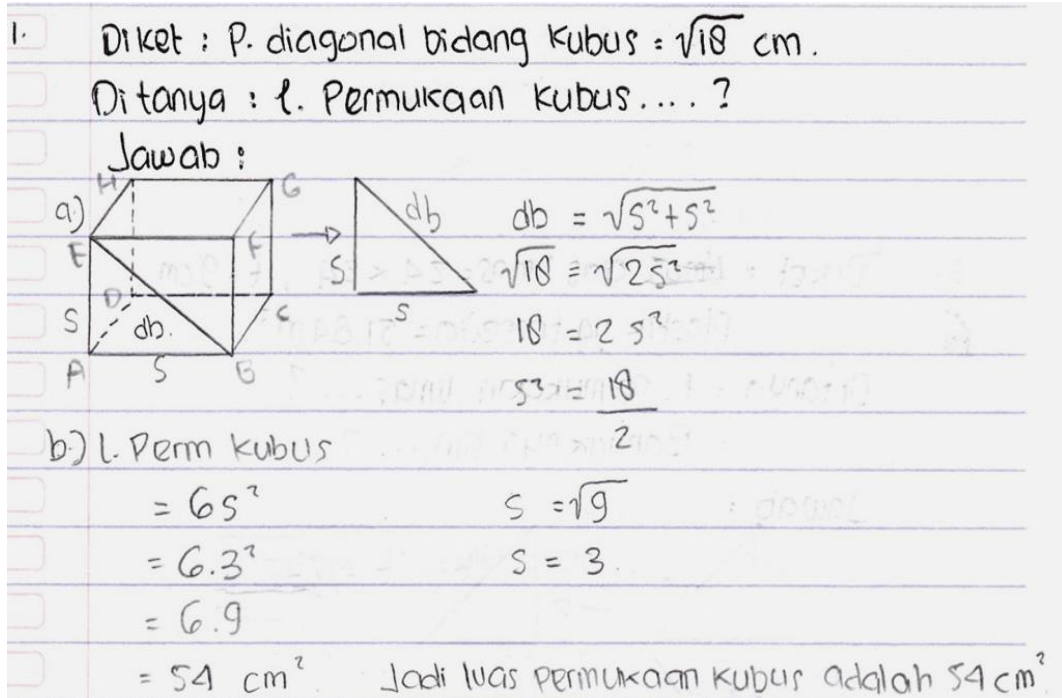 1. Diket : P. diagonal bidang kubus = √18 cm.
Ditanya : l. Permukaan kubus.... ?
Jawab :
a.)
H G
E F
D C
A B
S
S
db.
S
S
db
db = √S²+S²
√18 = √2S²
18 = 2 S²
S² = 18
2
S = √9
S = 3.
b.) l. Perm kubus
= 6S²
= 6.3²
= 6.9
= 54 cm² Jadi luas permukaan kubus adalah 54 cm²